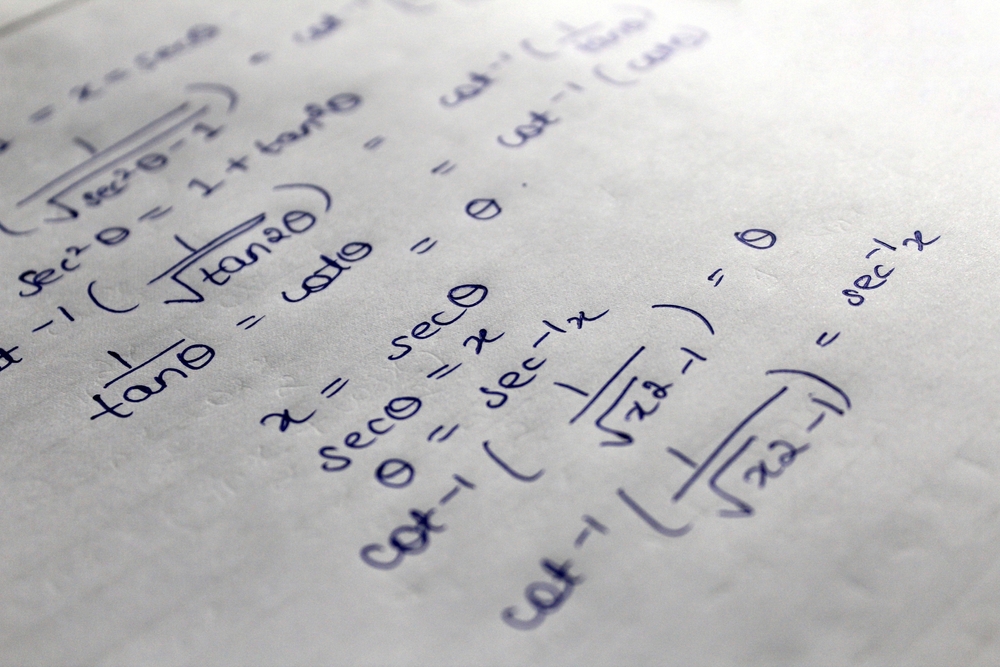 = x = secθ
= cot⁻¹ (
(1/√sec²θ - 1)
= cot⁻¹ (1/tanθ)
sec²θ = 1 + tan²θ
= cot⁻¹ (cotθ)
⁻¹ (1/√tan2θ)
= θ
1/tanθ = cotθ
x = secθ
secθ = x
θ = sec⁻¹x
cot⁻¹ (1/√x2-1) = θ
cot⁻¹ (1/√x2-1) = sec⁻¹x